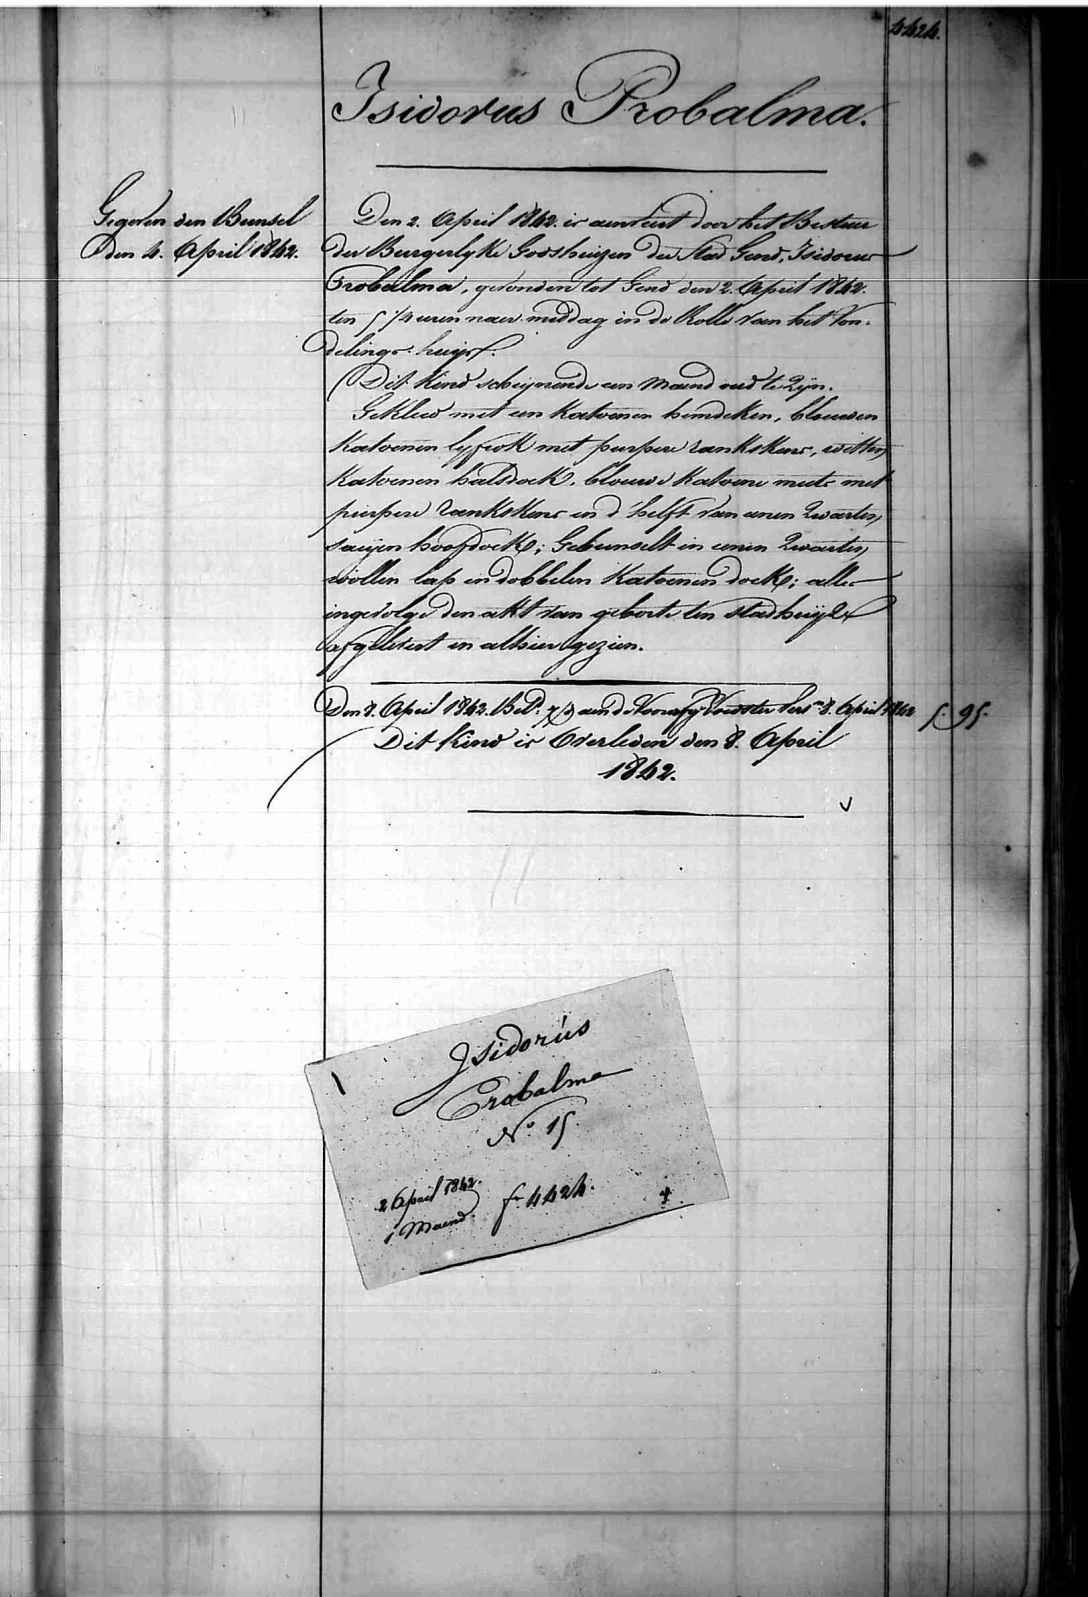 4424.
Isidorus Probalma.
Gegeven den Bunsel
den 4. April 1842.
Den 2. April 1842. is aenveert door het Bestuer
der Burgerlyke Godshuizen der Stad Gend, Isidorus
Probalma, gevonden tot Gend den 2. April 1842.
ten 5 1/4 uren naer middag in de Rolle van het Von-
delings-huijs.
Dit Kind scheynende een Maend oud te Zyn.
Gekleed met een Katoenen hemdeken, blauwen
Katoenen lyfrok met purpere rankskens, witten
Katoenen halsdoek, blouwe Katoene muts met
purpere rankskens en d'helft van eenen Zwarten
saeijen hoofdoek; Gebunselt in eenen Zwarten
wollen lap en dobbelen Katoenen doek; alles
ingevolge den akt van geboorte ten stadhuijze
afgelevert en alhier gezien.
Den 8. April 1842. Bet. aen de Voorzg Vrouw 8. April 1842 5. 95.
Dit Kind is Overleden den 8. April
1842.
Isidorus
Probalma
N° 15.
2 April 1842.
1 Maend. f° 4424.